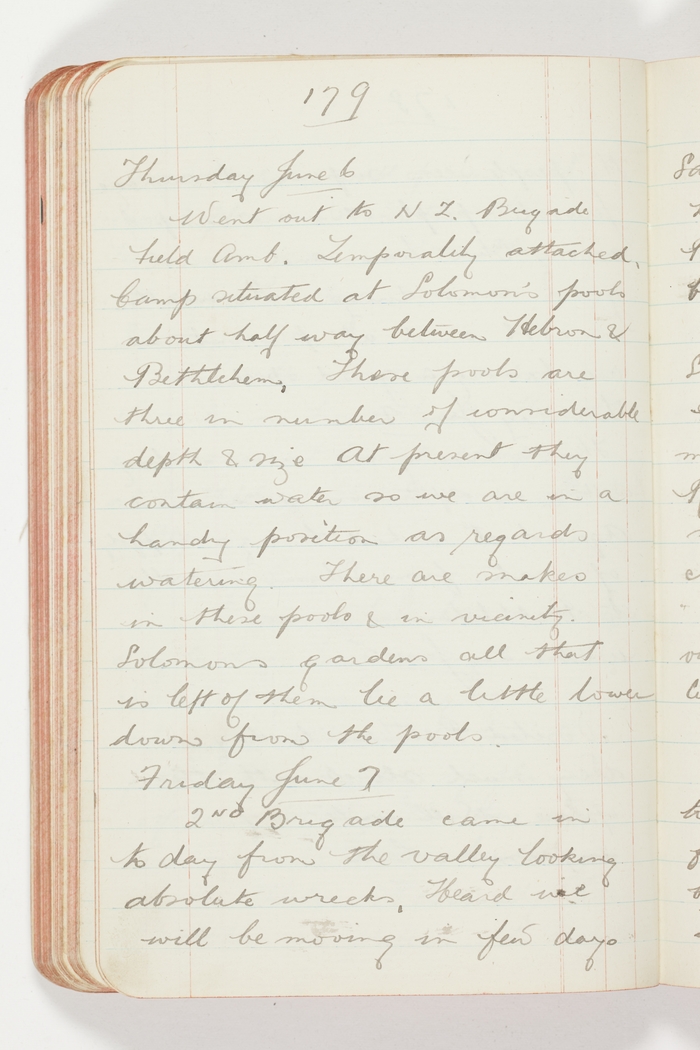 179
Thursday June 6
Went out to N Z. Brigade
Field Amb. Temporality attached.
Camp situated at Solomon's pools
about half way between Hebron &
Bethlehem. These pools are
three in number of considerable
depth & size At present they
contain water so we are in a
handy position as regards
watering. There are snakes
in these pools & in vicinity.
Solomons gardens all that
is left of them lie a little lower
down from the pools.
Friday June 7
2ND Brigade came in
to day from the valley looking
absolute wrecks. Heard we
will be moving in few days